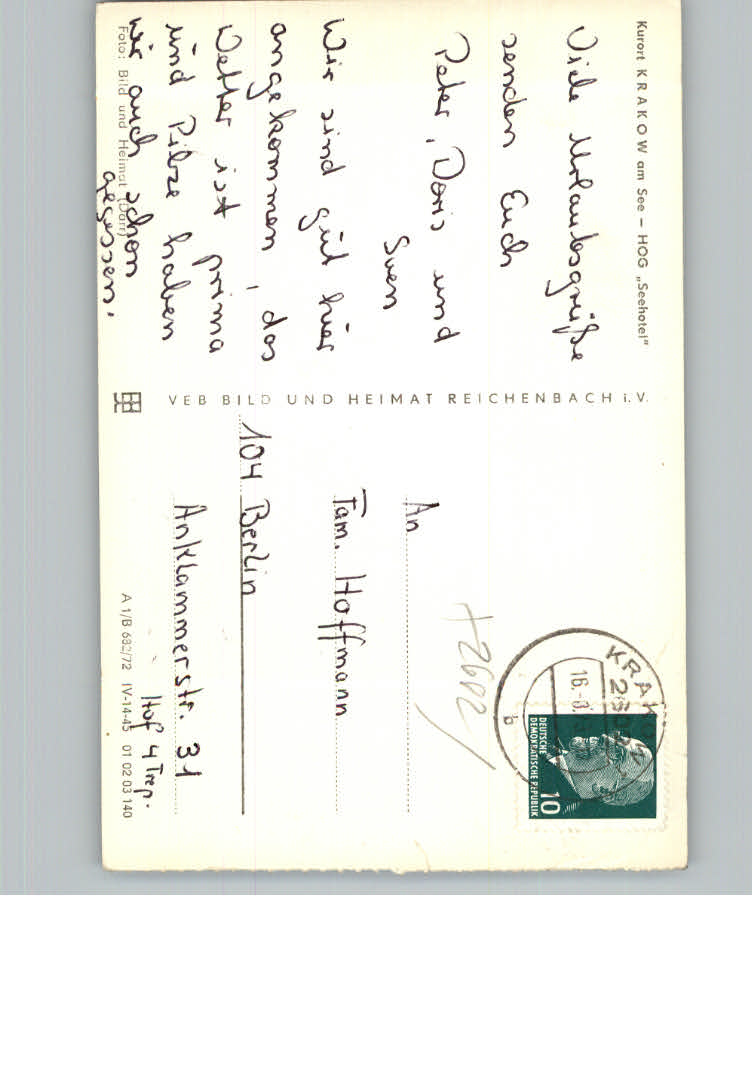 Kurort KRAKOW am See – HOG „Seehotel"
Viele Urlaubsgrüße
senden Euch
Peter, Doris und
Sven
Wir sind gut hier
angekommen, das
Wetter ist prima
und Pilze haben
wir auch schon
gegessen.
Foto: Bild und Heimat (Darr)
VEB BILD UND HEIMAT REICHENBACH i.V.
KRAK
16.-8.
b
DEUTSCHE
DEMOKRATISCHE REPUBLIK
10
+2602/
An
Fam. Hoffmann
104 Berlin
Anklammerstr. 31
Hof 4 Trep.
A 1/B 682/72 IV-14-45 01 02 03 140